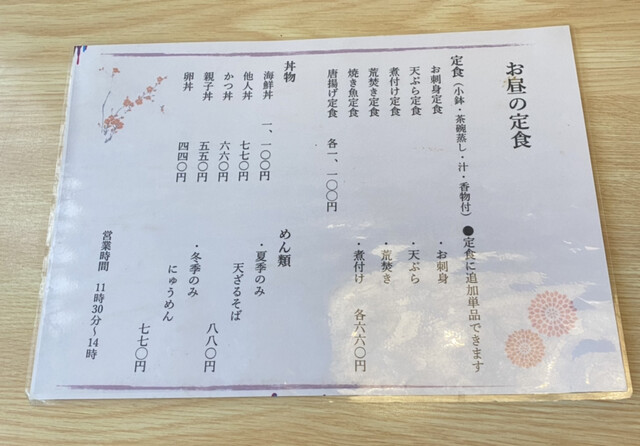 お昼の定食
定食（小鉢・茶碗蒸し・汁・香物付）
お刺身定食
天ぷら定食
煮付け定食
荒焚き定食
焼き魚定食
唐揚げ定食 各一、一〇〇円
●定食に追加単品できます
・お刺身
・天ぷら
・荒焚き
・煮付け 各六六〇円
丼物
海鮮丼 一、一〇〇円
他人丼 七七〇円
かつ丼 六六〇円
親子丼 五五〇円
卵丼 四四〇円
めん類
・夏季のみ
天ざるそば 八八〇円
・冬季のみ
にゅうめん 七七〇円
営業時間 11時30分～14時